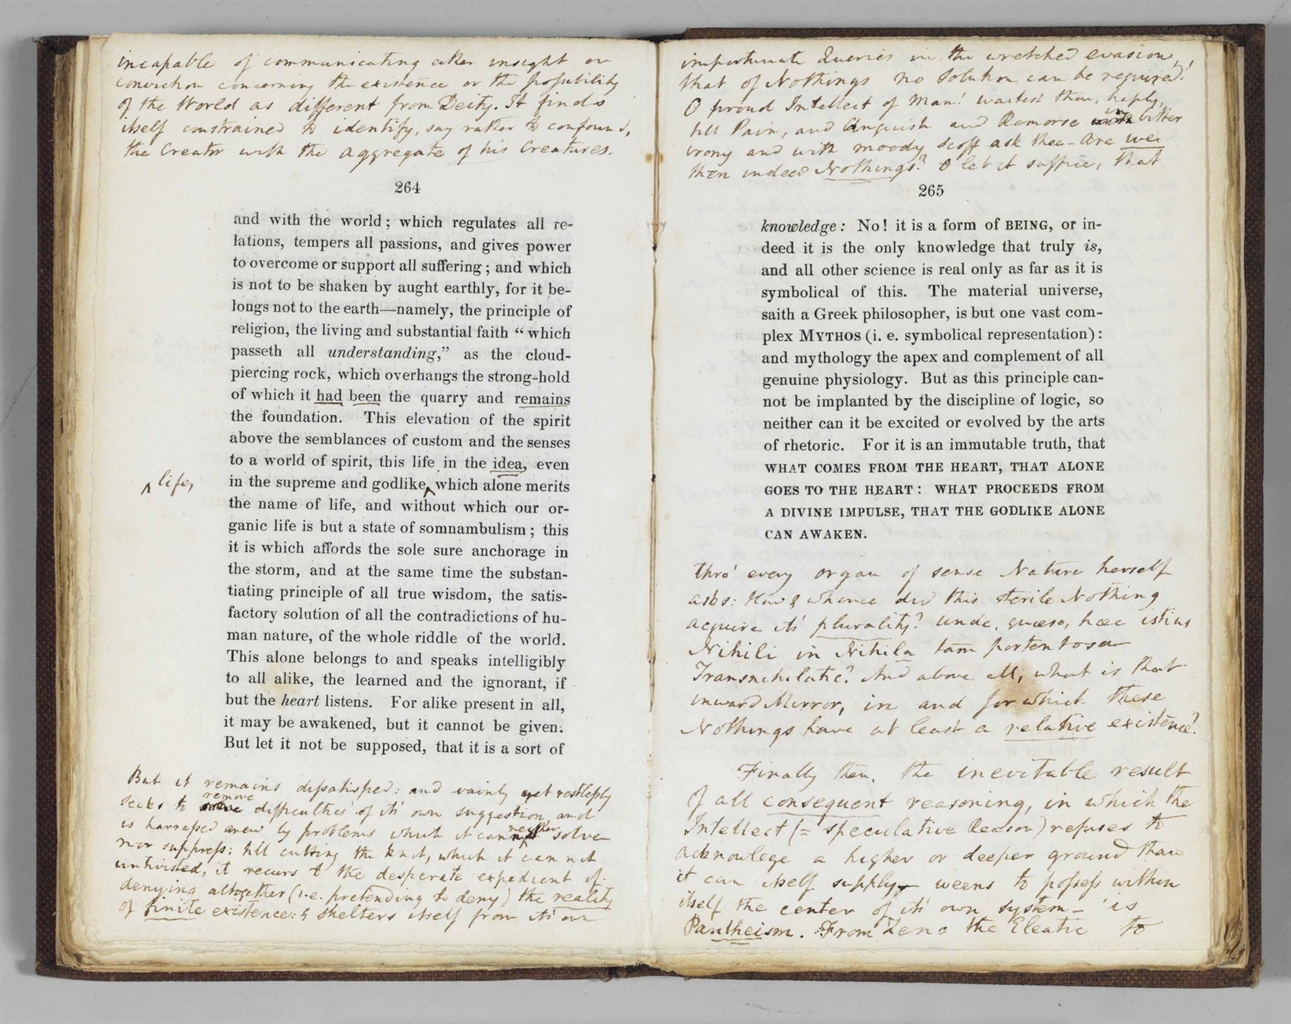 incapable of communicating either insight or
conviction concerning the existence or the possibility
of the World as different from Deity. It finds
itself constrained to identify, say rather to confound,
the Creator with the Aggregate of his Creatures.
264
and with the world; which regulates all re-
lations, tempers all passions, and gives power
to overcome or support all suffering; and which
is not to be shaken by aught earthly, for it be-
longs not to the earth—namely, the principle of
religion, the living and substantial faith “which
passeth all understanding,” as the cloud-
piercing rock, which overhangs the strong-hold
of which it had been the quarry and remains
the foundation. This elevation of the spirit
above the semblances of custom and the senses
to a world of spirit, this life in the idea, even
in the supreme and godlike, which alone merits
life,
the name of life, and without which our or-
ganic life is but a state of somnambulism; this
it is which affords the sole sure anchorage in
the storm, and at the same time the substan-
tiating principle of all true wisdom, the satis-
factory solution of all the contradictions of hu-
man nature, of the whole riddle of the world.
This alone belongs to and speaks intelligibly
to all alike, the learned and the ignorant, if
but the heart listens. For alike present in all,
it may be awakened, but it cannot be given.
But let it not be supposed, that it is a sort of
But it remains dissatisfied: and vainly yet restlessly
seeks to remove difficulties of it's own suggestion, and
is harrassed anew by problems which it can neither solve
nor suppress: till cutting the knot, which it can not
untwisted, it recurs to the desperate expedient of
denying altogether (i.e. pretending to deny) the reality
of finite existence: & shelters itself from it's own
importunate Queries in the wretched evasion,
that of Nothings no Solution can be required!
O proud Intellect of Man! waitest thou, haply,
till Pain, and Anguish and Remorse in bitter
irony and with moody scoff ask thee—Are we
then indeed Nothings? O let it suffice, that
265
knowledge: No! it is a form of BEING, or in-
deed it is the only knowledge that truly is,
and all other science is real only as far as it is
symbolical of this. The material universe,
saith a Greek philosopher, is but one vast com-
plex MYTHOS (i. e. symbolical representation):
and mythology the apex and complement of all
genuine physiology. But as this principle can-
not be implanted by the discipline of logic, so
neither can it be excited or evolved by the arts
of rhetoric. For it is an immutable truth, that
WHAT COMES FROM THE HEART, THAT ALONE
GOES TO THE HEART: WHAT PROCEEDS FROM
A DIVINE IMPULSE, THAT THE GODLIKE ALONE
CAN AWAKEN.
thro' every organ of sense Nature herself
asks: How & whence did this sterile Nothing
acquire it's plurality? Unde, quæso, hæc istius
Nihili in Nihila tam portentosa
Transnihilatio? And above all, what is that
inward Mirror, in and for which these
Nothings have at least a relative existence?
Finally then, the inevitable result
of all consequent reasoning, in which the
Intellect (= speculative Reason) refuses to
acknowlege a higher or deeper ground than
it can itself supply, weens to possess within
itself the center of it's own system—is
Pantheism. From Zeno the Eleatic to